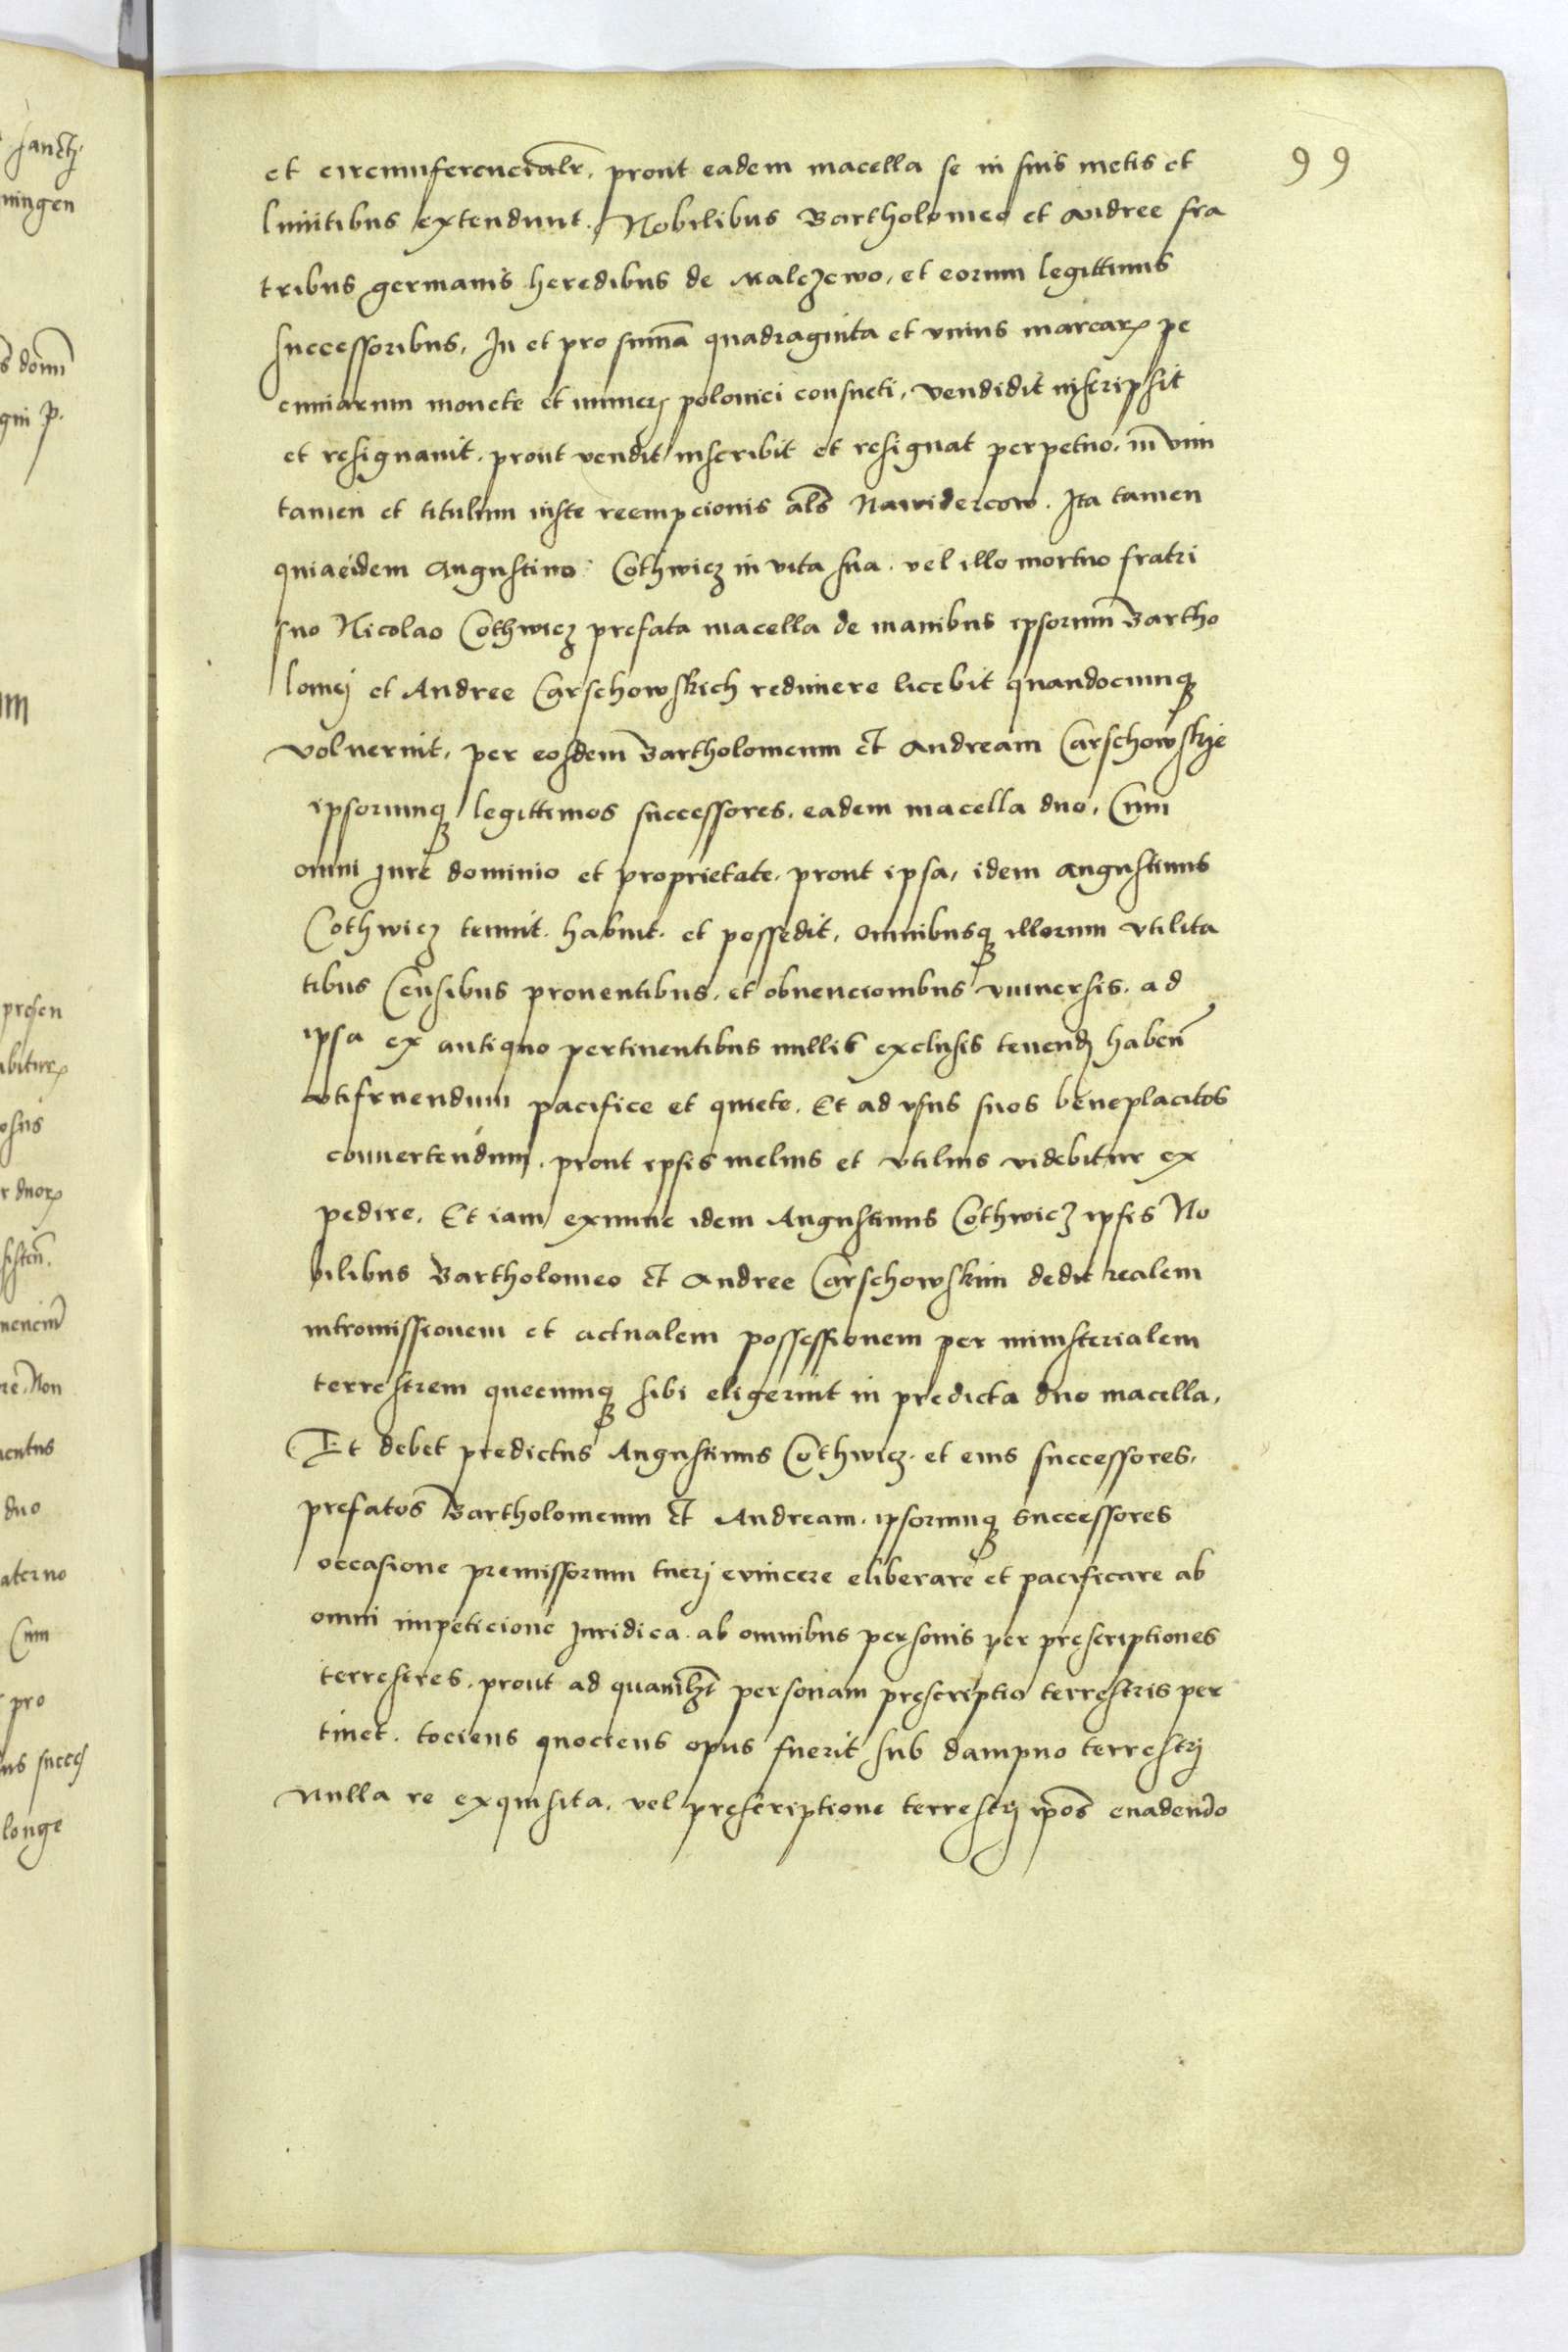 99
et circumferencialr̃, prout eadem macella se in suis metis et
limitibus extendunt. Nobilibus Bartholomeo et Andree fra
tribus germanis heredibus de Malczewo, et eorum legittimis
successoribus, In et pro sum̃a quadraginta et vnius marcarꝝ pe
cuniarum monete et numerj polonici consueti, vendidit inscripsit
et resignauit. prout vendit inscribit et resignat perpetuo. in vim
tamen et titulum iuste reempcionis al̃s Nawidercow. Ita tamen
quia eidem Augustino Cothwicz in vita sua. vel illo mortuo fratri
suo Nicolao Cothwicz prefata macella de manibus ipsorum Bartho
lomej et Andree Carschowskich redimere licebit quandocumqꝫ
voluerint, per eosdem Bartholomeum et Andream Carschowskje
ipsorumqꝫ legittimos successores. eadem macella duo, Cum
omni Jure dominio et proprietate. prout ipsa, idem Augustinus
Cothwicz tenuit. habuit. et possedit, omnibusqꝫ illorum vtilita
tibus Censibus prouentibus. et obuencionibus vniuersis. ad
ipsa ex antiquo pertinentibus nullis exclusis tenend habeñ
vtifruendum pacifice et quiete. Et ad vsus suos beneplacitos
conuertendum. prout ipsis melius et vtilius videbitur ex
pedire. Et iam exnunc idem Augustinus Cothwicz ipsis No
bilibus Bartholomeo et Andree Carschowskim dedit realem
intromissionem et actualem possessionem per ministerialem
terrestrem quecumqꝫ sibi eligerint in predicta duo macella,
Et debet predictus Augustinus Cothwicz. et eius successores,
prefatos Bartholomeum et Andream. ipsorumqꝫ successores
occasione premissorum tuerj euincere eliberare et pacificare ab
omni impeticione Juridica. ab omnibus personis per prescriptiones
terrestres. prout ad quamlꝫt personam prescriptio terrestris per
tinet. tociens quociens opus fuerit sub dampno terrestrj
Nulla re exquisita, vel prescriptione terrestrj ip̃os euadendo